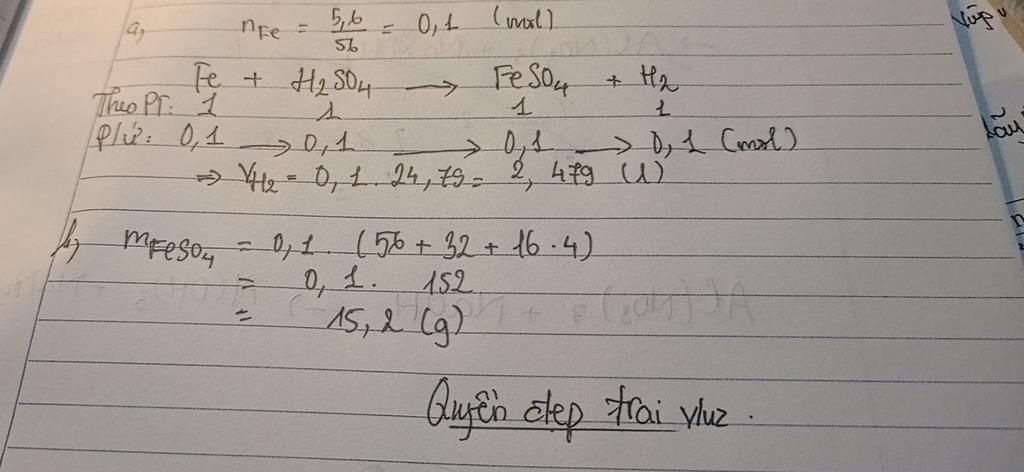 a, nFe = 5,6/56 = 0,1 (mol)
Fe + H2SO4 → FeSO4 + H2
Theo PT: 1 1 1 1
P/ứ: 0,1 → 0,1 → 0,1 → 0,1 (mol)
⇒ VH2 = 0,1 . 24,79 = 2,479 (l)
b, mFeSO4 = 0,1 . (56 + 32 + 16 . 4)
= 0,1 . 152
= 15,2 (g)
Quyền đẹp trai vluz .